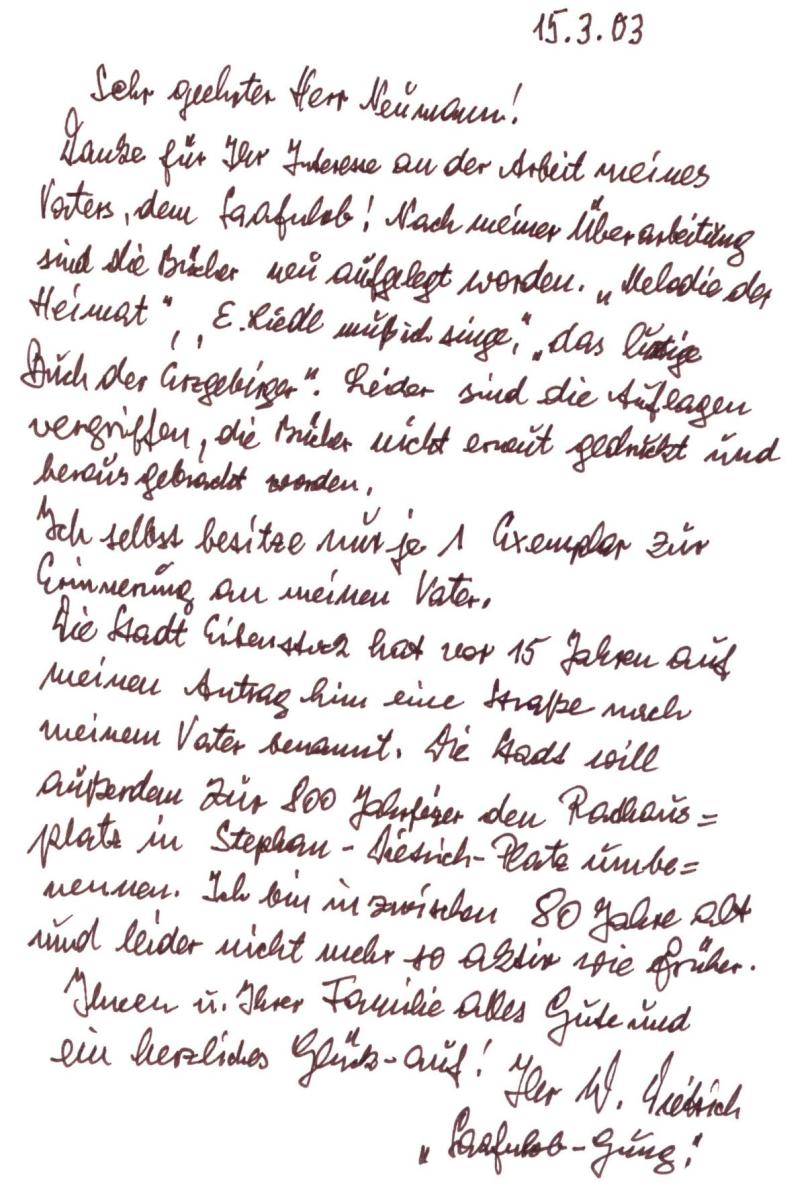 15.3.03
Sehr geehrter Herr Neumann!
Danke für Ihr Interesse an der Arbeit meines
Vaters, dem Saafnlob! Nach meiner Überarbeitung
sind die Bücher neu aufgelegt worden. „Melodie der
Heimat", „E. Liedl muß ich singe", „das lustige
Buch der Erzgebirger". Leider sind die Auflagen
vergriffen, die Bücher nicht erneut gedruckt und
herausgebracht worden.
Ich selbst besitze nur je 1 Exemplar zur
Erinnerung an meinen Vater.
Die Stadt Eibenstock hat vor 15 Jahren auf
meinen Antrag hin eine Straße nach
meinem Vater benannt. Die Stadt will
außerdem zur 800 Jahrfeier den Rathaus=
platz in Stephan-Dietrich-Platz umbe=
nennen. Ich bin inzwischen 80 Jahre alt
und leider nicht mehr so aktiv wie früher.
Ihnen u. Ihrer Familie alles Gute und
ein herzliches Glück-auf! Ihr W. Dietrich
„Saafnlob-Gung"